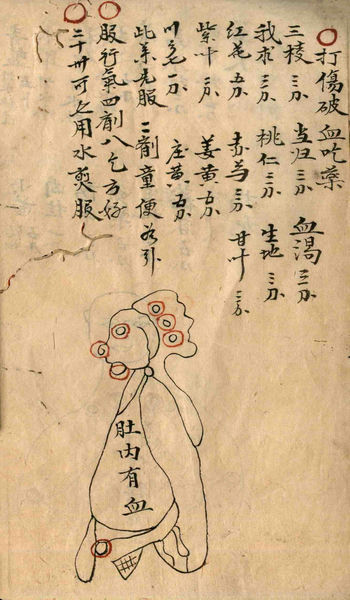 打傷破血吃藥
三棱 三分 当归 三分 血渴 三分
我求 三分 桃仁 三分 生地 三分
红花 五分 赤芍 三分 甘叶 三分
紫叶 分 姜黄 五分
川 一分 庄黄 五分
此系先服二劑童便為引
服行氣四劑八乞方好
二十卅可上用水煎服
肚内有血